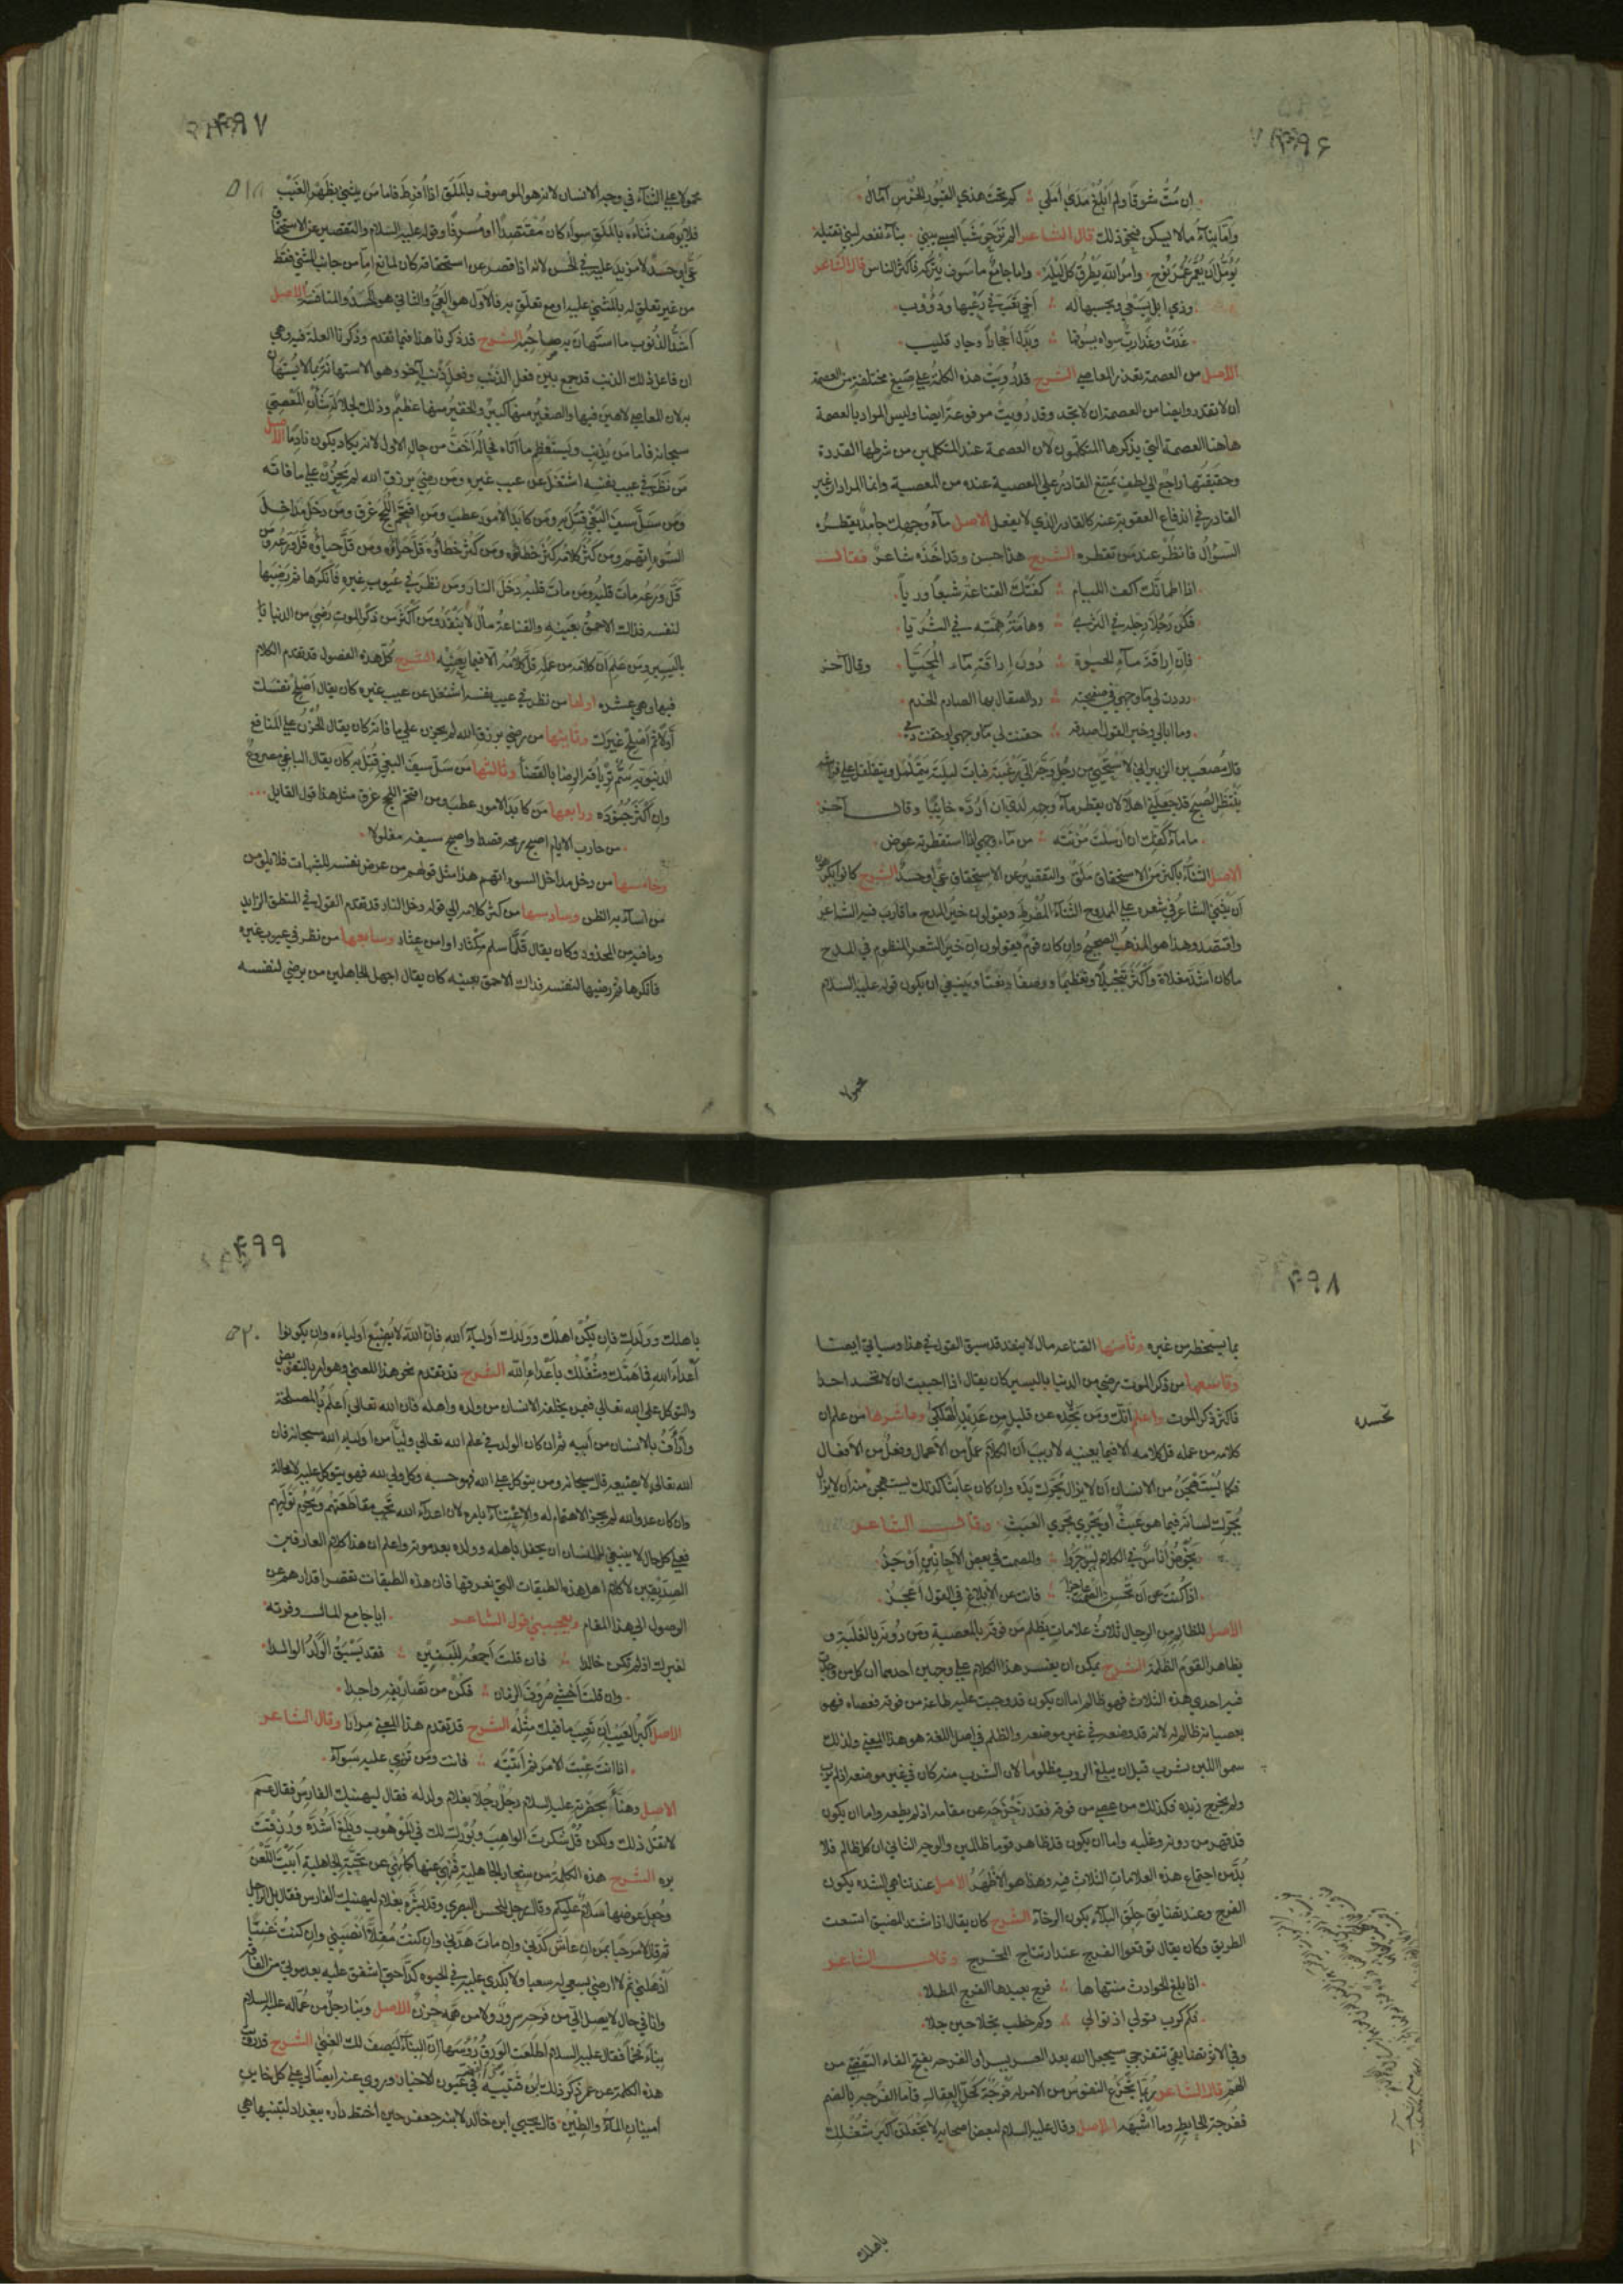 ۴۹۶
ان مت شوقا ولم ابلغ مدي املي ؞ كم تحت هذي القبور الخرس آمال
واما بناء مالا يسكن فنحو ذلك قال الشاعر الم تر حوشبا امسي يبني بناء نفعه لبني نفيلة
يؤمل ان يعمر عمر نوح وامر الله يطرق كل ليلة واما جامع ما سوف يتركه فاكثر الناس قال الشاعر
وذي ابل يسعي ويحسبها له ؞ اخي نصب في رعيها ودؤوب
غدت وغدا رب سواه يسوقها ؞ وبدل احجارا وجال قليب
الاصل من العصمة تعذر المعاصي الشرح قد رويت هذه الكلمة علي صيغ مختلفة من العصمة
ان لا تقدر وايضا من العصمة ان لا تجد وقد رويت مرفوعة ايضا وليس المراد بالعصمة
هاهنا العصمة التي يذكرها المتكلمون لان العصمة عند المتكلمين من شرطها القدرة
وحقيقتها راجع الي لطف يمتنع القادر علي المعصية عنده من المعصية وانما المراد ان غير
القادر في اندفاع العقوبة عنه كالقادر الذي لا يفعل الاصل ماء وجهك جامد يقطره
السؤال فانظر عند من تقطره الشرح هذا حسن وقد اخذه شاعر فقال
اذا اظماتك اكف اللئام ؞ كفتك القناعة شبعا وريا
فكن رجلا رجله في الثري ؞ وهامة همته في الثريا
فان اراقة ماء الحيوة ؞ دون اراقة ماء المحيا وقال آخر
رددت لي ماء وجهي في صفيحته ؞ رد الصقال بها الصارم الخذم
وما ابالي وخير القول اصدقه ؞ حقنت لي ماء وجهي او حقنت دمي
قال مصعب بن الزبير اني لاستحيي من رجل وجه الي رغبته فبات ليلته يتململ ويتقلقل علي فراشه
ينتظر الصبح قد جعلني اهلا لان يقطر ماء وجهه لدي ان ارده خائبا وقال آخر
ما ماء كفك ان ارسلت مزنته ؞ من ماء وجهي اذا استقطرته عوض
الاصل الثناء باكثر من الاستحقاق ملق والتقصير عن الاستحقاق عي او حسد الشرح كانوا يكرهون
ان يثني الشاعر في شعره علي الممدوح الثناء المفرط ويقولون خير المدح ما قارب فيه الشاعر
واقتصد وهذا هو المذهب الصحيح وان كان قوم يقولون ان خير الشعر المنظوم في المدح
ما كان اشد مغلاة واكثر تبجيلا وتعظيما ووصفا ونعتا وينبغي ان يكون قوله عليه السلام
محمولا
۴۹۷
۵۱۸
محمولا علي الثناء في وجه الانسان لانه هو الموصوف بالملق اذا افرط فاما من يثني بظهر الغيب
فلا يوصف ثناءه بالملق سواء كان مقتصدا او مسرفا وقوله عليه السلام والتقصير عن الاستحقاق
عي او حسد لا مزيد عليه في الحسن لانه اذا قصر عن استحقاقه كان لمانع اما من جانب المثني فقط
من غير تعلق له بالمثني عليه او مع تعلق به فالاول هو العي والثاني هو الحسد والمنافسة الاصل
اشد الذنوب ما استهان به صاحبه الشرح قد ذكرنا هذا فيما تقدم وذكرنا العلة فيه وهي
ان فاعل ذلك الذنب قد جمع بين فعل الذنب وفعل ذنب آخر وهو الاستهانة بما لا يستهان
به لان المعاصي لا هين فيها والصغير منها كبير والحقير منها عظيم وذلك لجلالة شان المعصي
سبحانه فاما من يذنب ويستعظم ما اتاه فحاله اخف من حال الاول لانه يكاد يكون نادما الاصل
من نظر في عيب نفسه اشتغل عن عيب غيره ومن رضي برزق الله لم يحزن علي ما فاته
ومن سل سيف البغي قتل به ومن كابد الامور عطب ومن اقتحم اللجج غرق ومن دخل مداخل
السوء اتهم ومن كثر كلامه كثر خطاؤه ومن كثر خطاؤه قل حياؤه ومن قل حياؤه قل ورعه ومن
قل ورعه مات قلبه ومن مات قلبه دخل النار ومن نظر في عيوب غيره فانكرها ثم رضيها
لنفسه فذلك الاحمق بعينه والقناعة مال لا ينفد ومن اكثر من ذكر الموت رضي من الدنيا با
باليسير ومن علم ان كلامه من عمله قل كلامه الا فيما يعنيه الشرح كل هذه الفصول قد تقدم الكلام
فيها وهي عشرة اولها من نظر في عيب نفسه اشتغل عن عيب غيره كان يقال اصلح نفسك
اولا ثم اصلح غيرك وثانيها من رضي برزق الله لم يحزن علي ما فاته كان يقال الحزن علي المنافع
الدنيوية سم ترياقه الرضا بالقضاء وثالثها من سل سيف البغي قتل به كان يقال الباغي مصروع
وان كثر جنوده ورابعها من كابد الامور عطب ومن اقتحم اللجج غرق مثل هذا قول القايل
من حارب الايام اصبح رمحه قصدا واصبح سيفه مفلولا
وخامسها من دخل مداخل السوء اتهم هذا مثل قولهم من عرض نفسه للشبهات فلا يلومن
من اساء به الظن وسادسها من كثر كلامه الي قوله دخل النار قد تقدم القول في المنطق الزايد
وما فيه من المحذور وكان يقال قلما سلم مكثار او امن عثار وسابعها من نظر في عيوب غيره
فانكرها ثم رضيها لنفسه فذلك الاحمق بعينه كان يقال اجهل الجاهلين من يرضي لنفسه
۴۹۸
بما يسخطه من غيره وثامنها القناعة مال لا ينفد قد سبق القول في هذا وسياتي ايضا
وتاسعها من ذكر الموت رضي من الدنيا باليسير كان يقال اذا احببت ان لا تحسد احدا
فاكثر ذكر الموت واعلم انك ومن تحسده عن قليل من عديد الهلكي وعاشرها من علم ان
تحسده
كلامه من عمله قل كلامه الا فيما يعنيه لا ريب ان الكلام عمل من الاعمال وفعل من الافعال
فكما يستهجن من الانسان ان لا يزال يحرك يده وان كان عابثا كذلك يستهجن منه ان لا يزال
يحرك لسانه فيما هو عبث او يجري مجري العبث وقال الشاعر
يخوض اناس في الكلام ليوجزوا ؞ وللصمت في بعض الاحايين اوجز
اذا كنت عن ان تحسن الصمت عاجزا ؞ فانت عن الابلاغ في القول اعجز
الاصل للظالم من الرجال ثلاث علامات يظلم من فوقه بالمعصية ومن دونه بالغلبة و
يظاهر القوم الظلمة الشرح يمكن ان يفسر هذا الكلام علي وجهين احدهما ان كل من وجدت
فيه احدي هذه الثلاث فهو ظالم اما ان يكون قد وجبت عليه طاعة من فوقه فعصاه فهو
بعصيانه ظالم له لانه قد وضعه في غير موضعه والظلم في اصل اللغة هو هذا المعني ولذلك
سموا اللبن يشرب قبل ان يبلغ الروب مظلوما لان الشرب منه كان في غير موضعه اذ لم يرب
ولم يخرج زبده فكذلك من عصي من فوقه فقد زحزحه عن مقامه اذ لم يطعه واما ان يكون
قد قهر من دونه وغلبه واما ان يكون قد ظاهر قوما ظالمين والوجه الثاني ان كل ظالم فلا
بد من اجتماع هذه العلامات الثلاث فيه وهذا هو الاظهر الاصل عند تناهي الشدة يكون
الفرج وعند تضايق حلق البلاء يكون الرخاء الشرح كان يقال اذا اشتد المضيق اتسعت
الطريق وكان يقال توقعوا الفرج عند ارتتاج المخرج وقال الشاعر
اذا بلغ الحوادث منتهاها ؞ فرج بعيدها الفرج المطلا
فكم كرب تولي اذ توالي ؞ وكم خطب تجلا حين جلا
وفي الاثر تضايقي تنفرجي سيجعل الله بعد العسر يسرا والفرجة بفتح الفاء التفصي من
الهم قال الشاعر ربما تجزع النفوس من الامر له فرجة كحل العقال فاما الفرجة بالضم
ففرجة الحايط وما اشبهه الاصل وقال عليه السلام لبعض اصحابه لا تجعلن اكبر شغلك
باهلك
۴۹۹
۵۲۰
باهلك وولدك فان يكن اهلك وولدك اولياء الله فان الله لا يضيع اولياءه وان يكونوا
اعداء الله فما همك وشغلك باعداء الله الشرح قد تقدم نحو هذا المعني وهو امر بالتفويض
والتوكل علي الله تعالي فيمن يخلفه الانسان من ولده واهله فان الله تعالي اعلم بالمصلحة
وارأف بالانسان من ابيه ثم ان كان الولد في علم الله تعالي وليا من اولياء الله سبحانه فان
الله تعالي لا يضيعه قال سبحانه ومن يتوكل علي الله فهو حسبه وكل ولي لله فهو يتوكل عليه لا محالة
وان كان عدوا لله لم يجز الاهتمام له والاعتناء بامره لان اعداء الله تجب مقاطعتهم ويحرم توليهم
فعلي كل حال لا ينبغي للانسان ان يحفل باهله وولده بعد موته واعلم ان هذا كلام العارفين
الصديقين لا كلام اهل هذه الطبقات التي نعرفها فان هذه الطبقات تقصر اقدارهم عن
الوصول الي هذا المقام ويعجبني قول الشاعر ايا جامع المال وفرته
لغيرك اذ لم تكن خالدا ؞ فان قلت اجمعه للبنين ؞ فقد يسبق الولد الوالدا
وان قلت اخشي صروف الزمان ؞ فكن من تصاريفه واحدا
الاصل اكبر العيب ان تعيب ما فيك مثله الشرح قد تقدم هذا المعني مرارا وقال الشاعر
اذا انت عبت الامر ثم اتيته ؞ فانت ومن تزري عليه سواء
الاصل وهنأ بحضرته عليه السلام رجل رجلا بغلام ولد له فقال ليهنيك الفارس فقال عم
لا تقل ذلك ولكن قل شكرت الواهب وبورك لك في الموهوب وبلغ اشده ورزقت
بره الشرح هذه الكلمة من شعار الجاهلية فنهي عنها كما نهي عن تحية الجاهلية ابيت اللعن
وجعل عوضها سلام عليكم وقال رجل للحسن البصري وقد بشره بغلام ليهنيك الفارس فقال بل الراجل
ثم قال لا مرحبا بمن ان عاش كدني وان مات هدني وان كنت مقلا انصبني وان كنت غنيا
اذهلني ثم لا ارضي بسعي له سعيا ولا بكدي عليه في الحيوة كدا حتي اشفق عليه بعد موتي من الفاقة
وانا في حال لا يصل الي من فرحه سرور ولا من همه حزن الاصل وبنا رجل من عماله عليه السلام
بناء فخما فقال عليه السلام اطلعت الورق رؤسها ان البناء ليصف لك الغني الشرح قد رويت
هذه الكلمة عن عمر ذكر ذلك ابن قتيبة في عيون الاخبار وروي عنه ايضا لي علي كل خاين
امينان الماء والطين قال يحيي ابن خالد لابنه جعفر حين اختط داره ببغداد ليبنيها هي